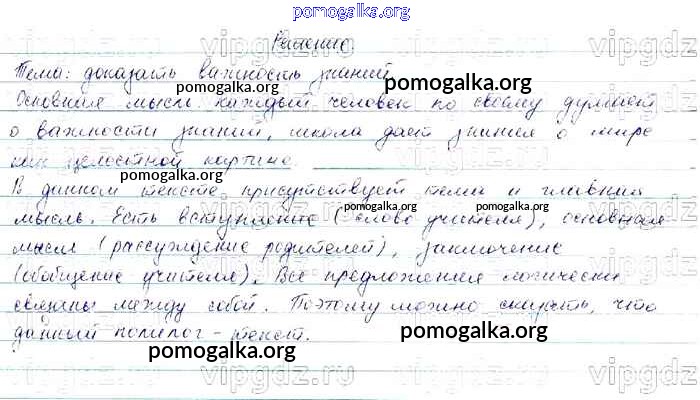 pomogalka.org
Решение
Тема: доказать важность знаний.
pomogalka.org
Основная мысль: каждый человек по своему думает
о важности знаний, школа дает знания о мире
как целостной картине.
pomogalka.org
В данном тексте присутствует тема и главная
pomogalka.org pomogalka.org
мысль. Есть вступление (слово учителя), основная
мысль (рассуждение родителей), заключение
(обобщение учителя). Все предложения логически
связаны между собой. Поэтому можно сказать, что
данный полилог - текст.
pomogalka.org
pomogalka.org
vipgdz.ru vipgdz.ru vipgdz.ru
vipgdz.ru vipgdz.ru vipgdz.ru